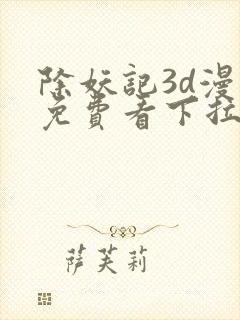 除妖记3d漫
免费看下拉
萨芙莉